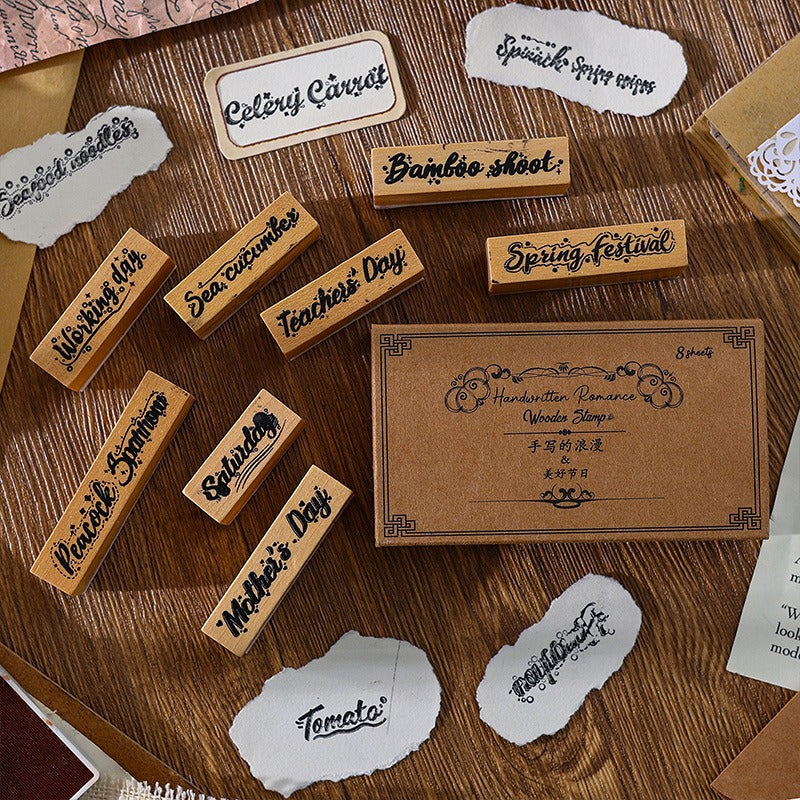 Celery Carrot
Spinach Spring onions
Seafood noodles
Bamboo shoot
Sea cucumber
Spring Festival
Teachers' Day
Working day
8 sheets
Handwritten Romance
Wooden Stamp
手写的浪漫
&
美好节日
Peacock
Saturday
Mother's Day
Tomato
"W
look
mode